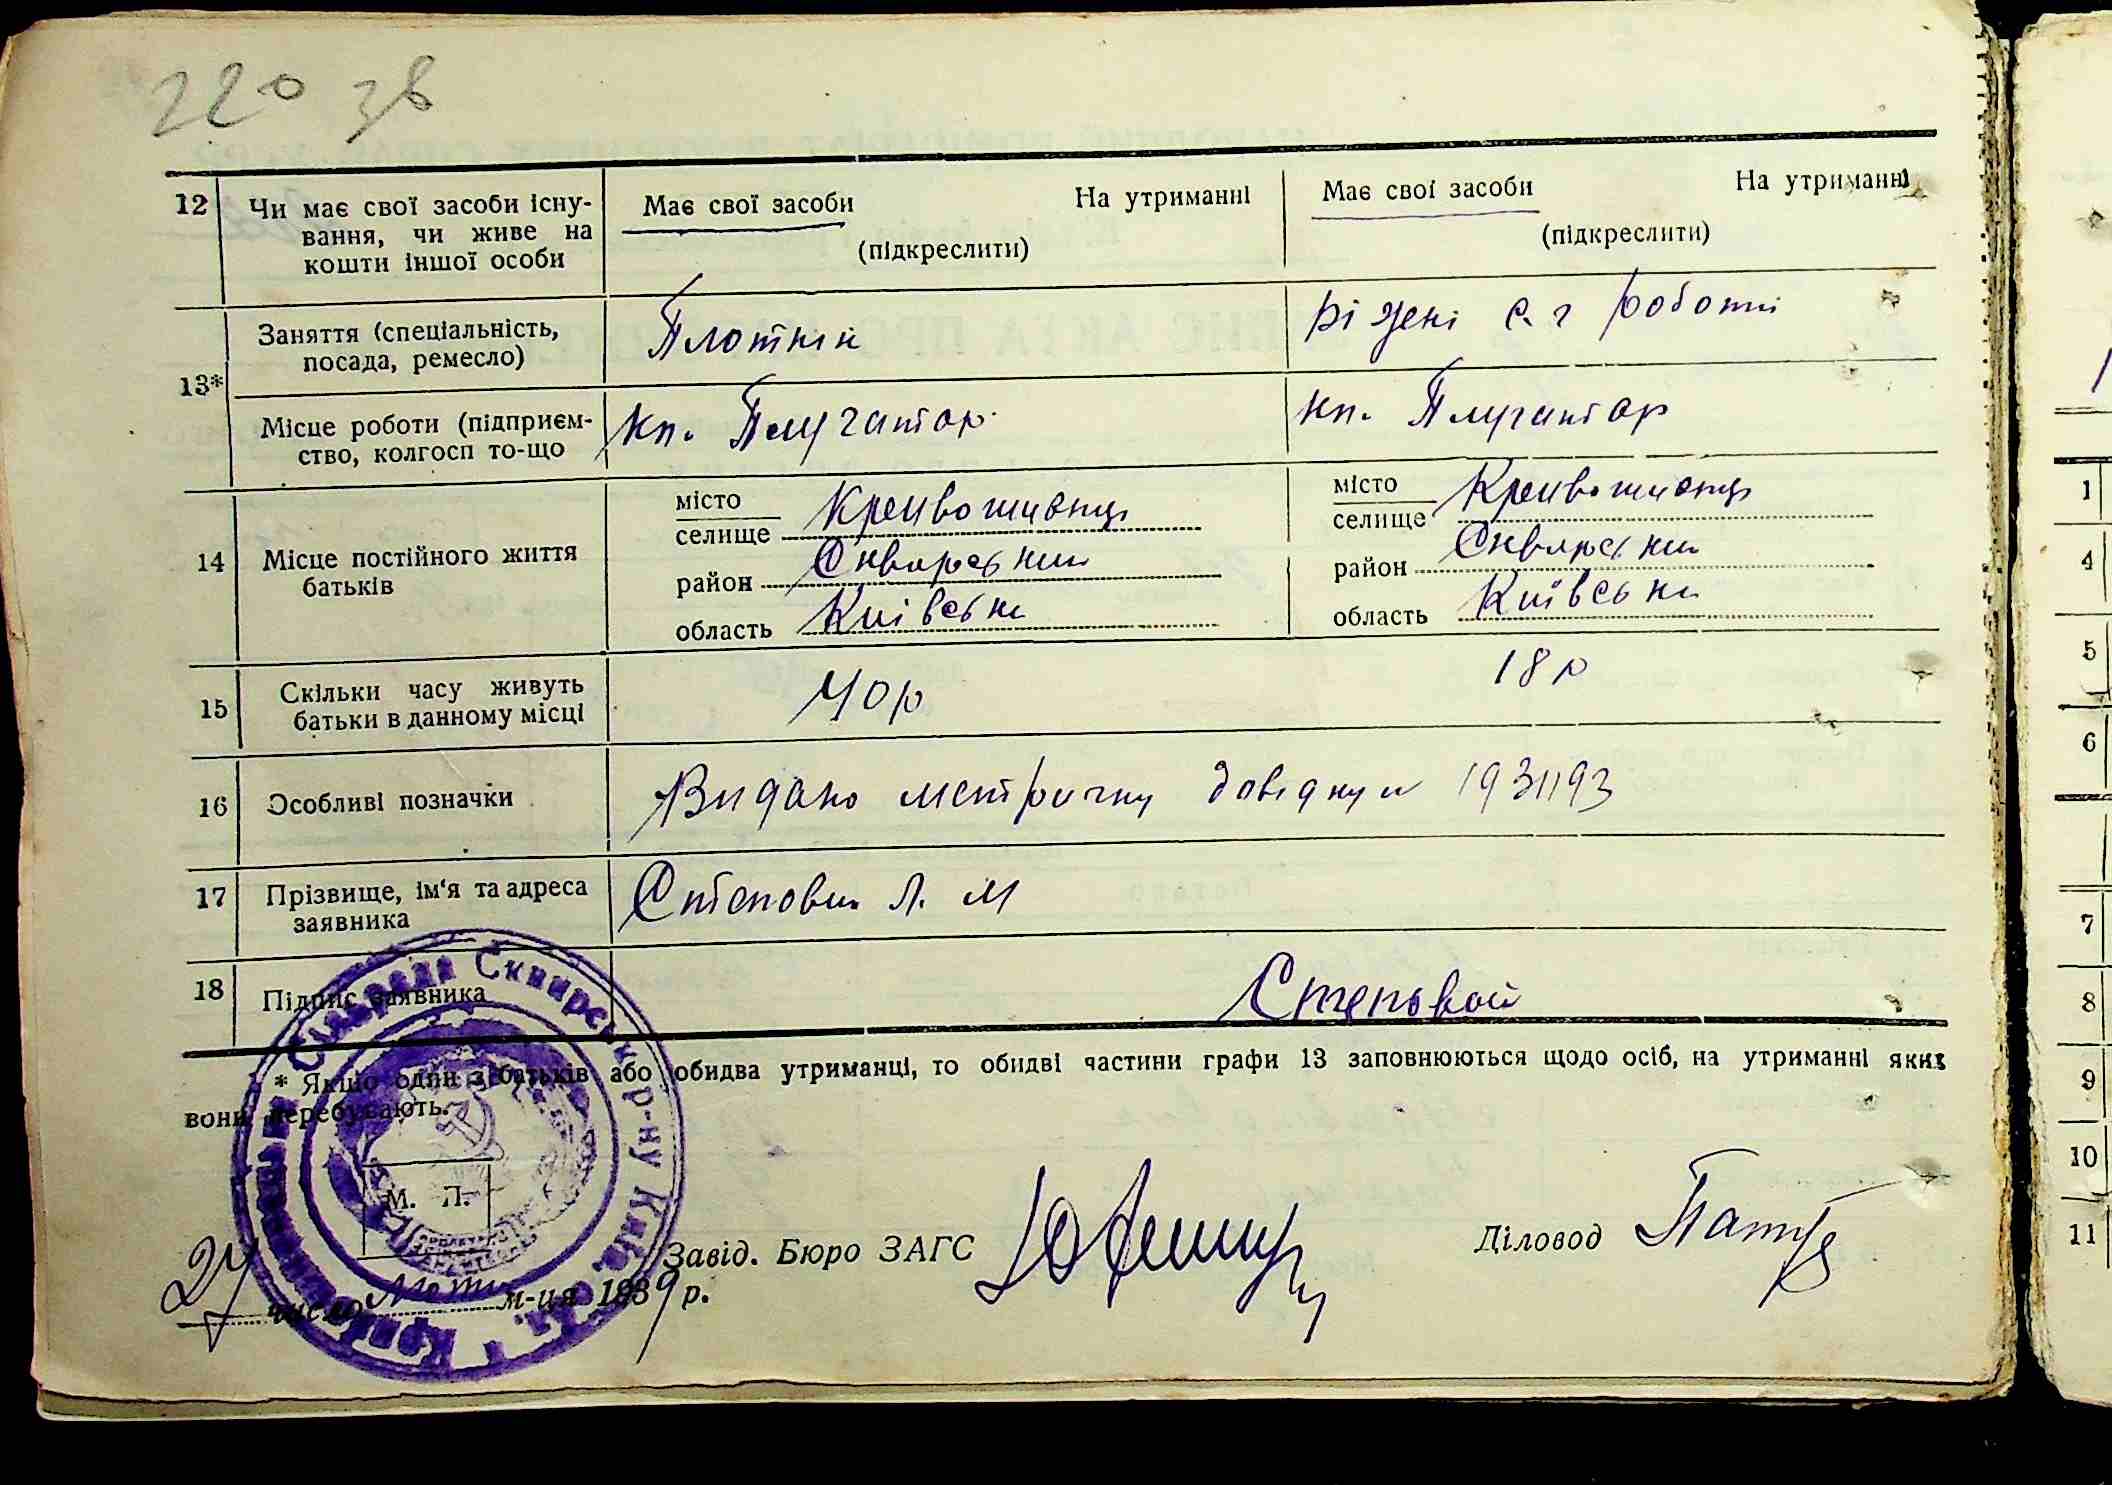 220 зв
12 Чи має свої засоби існу-
вання, чи живе на
кошти іншої особи
Має свої засоби На утриманні
(підкреслити)
Має свої засоби На утриманні
(підкреслити)
13*
Заняття (спеціальність,
посада, ремесло)
Плотнік
ріжні с. г роботи
Місце роботи (підприєм-
ство, колгосп то-що
кп. Плугатар
кп. Плугатар
14 Місце постійного життя
батьків
місто
селище Кривошиєнці
район Сквирський
область Київська
місто
селище Кривошиєнці
район Сквирський
область Київська
15 Скільки часу живуть
батьки в данному місці
40 р
18 р
16 Особливі позначки
Видано метричну довідку 1931193
17 Прізвище, ім'я та адреса
заявника
Степовий Л. М
18 Підпис заявника
Степовой
* Якщо один з батьків або обидва утриманці, то обидві частини графи 13 заповнюються щодо осіб, на утриманні яких
вони перебувають.
М. П.
Сільрада Сквирськ. р-ну Київ.
Завід. Бюро ЗАГС
Діловод
27 число м-ця 1939 р.
1
4
5
6
7
8
9
10
11